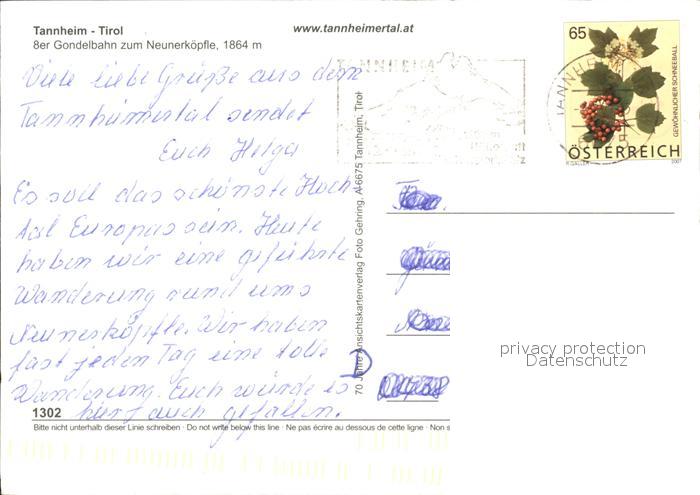 Tannheim - Tirol
8er Gondelbahn zum Neunerköpfle, 1864 m
www.tannheimertal.at
Viele liebe Grüße aus dem
Tannheimertal sendet
Euch Helga
Es soll das schönste Hoch-
tal Europas sein. Heute
haben wir eine geführte
Wanderung rund ums
Neunerköpfle. Wir haben
fast jeden Tag eine tolle
Wanderung. Euch würde es
hier auch gefallen.
1302
Bitte nicht unterhalb dieser Linie schreiben · Do not write below this line · Ne pas écrire au dessous de cette ligne · Non s
70 Jahre Ansichtskartenverlag Foto Gehring, A-6675 Tannheim, Tirol
TANNHEIM
TANNHEIM
65
GEWÖHNLICHER SCHNEEBALL
ÖSTERREICH
2007
D
privacy protection
Datenschutz